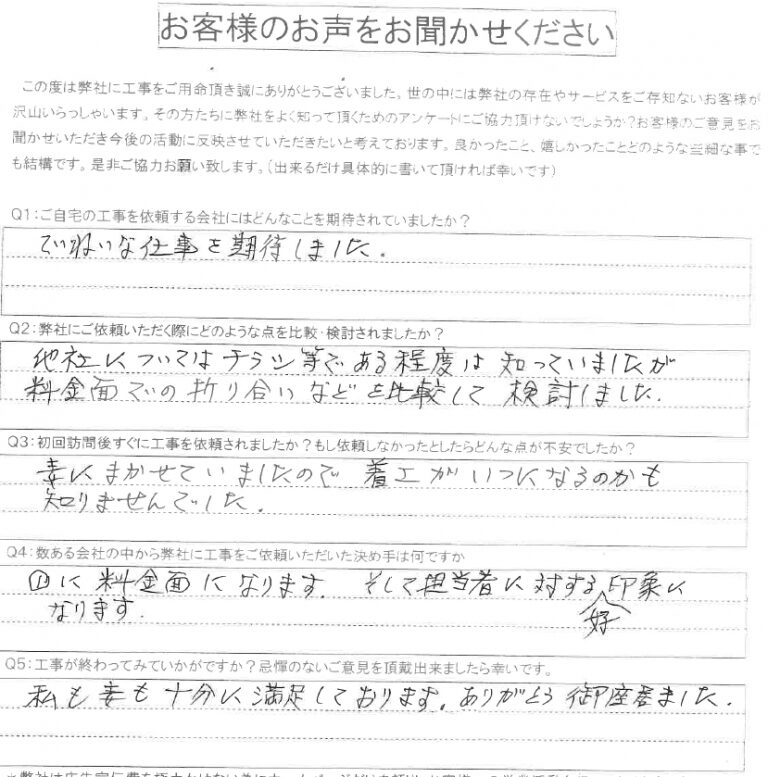 お客様のお声をお聞かせください
この度は弊社に工事をご用命頂き誠にありがとうございました。世の中には弊社の存在やサービスをご存知ないお客様が
沢山いらっしゃいます。その方たちに弊社をよく知って頂くためのアンケートにご協力頂けないでしょうか？お客様のご意見をお
聞かせいただき今後の活動に反映させていただきたいと考えております。良かったこと、嬉しかったことどのような些細な事で
も結構です。是非ご協力お願い致します。（出来るだけ具体的に書いて頂ければ幸いです）
Q1：ご自宅の工事を依頼する会社にはどんなことを期待されていましたか？
ていねいな仕事を期待しました。
Q2：弊社にご依頼いただく際にどのような点を比較・検討されましたか？
他社についてはチラシ等である程度は知っていましたが
料金面での折り合いなどを比較して検討しました。
Q3：初回訪問後すぐに工事を依頼されましたか？もし依頼しなかったとしたらどんな点が不安でしたか？
妻にまかせていましたので着工がいつになるのかも
知りませんでした。
Q4：数ある会社の中から弊社に工事をご依頼いただいた決め手は何ですか
①に料金面になります。そして担当者に対する好印象に
なります。
Q5：工事が終わってみていかがですか？忌憚のないご意見を頂戴出来ましたら幸いです。
私も妻も十分に満足しております。ありがとう御座居ました。